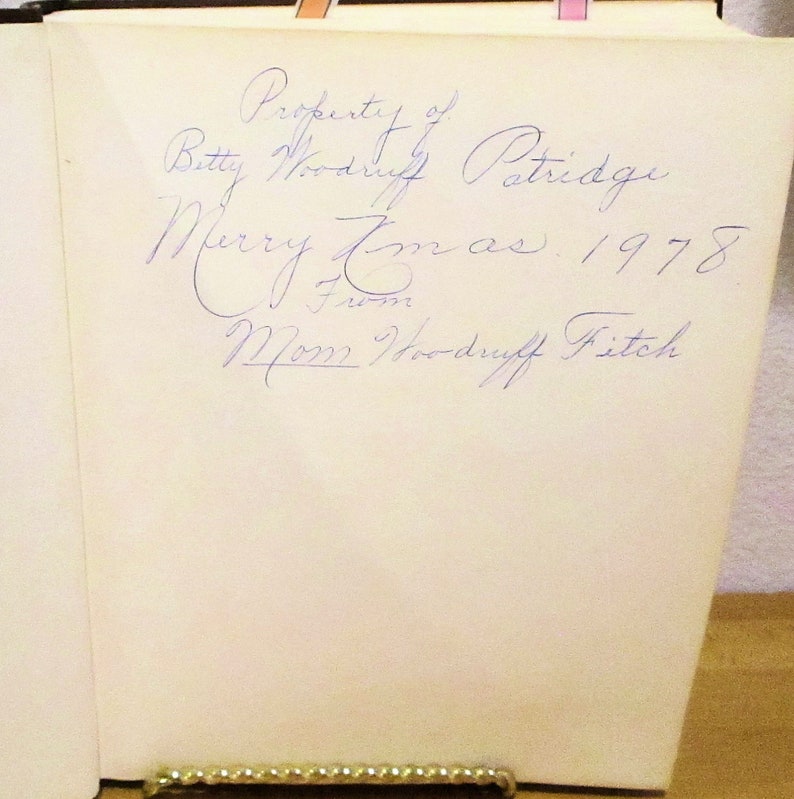 Property of
Betty Woodruff Patridge
Merry Xmas. 1978
From
Mom Woodruff Fitch